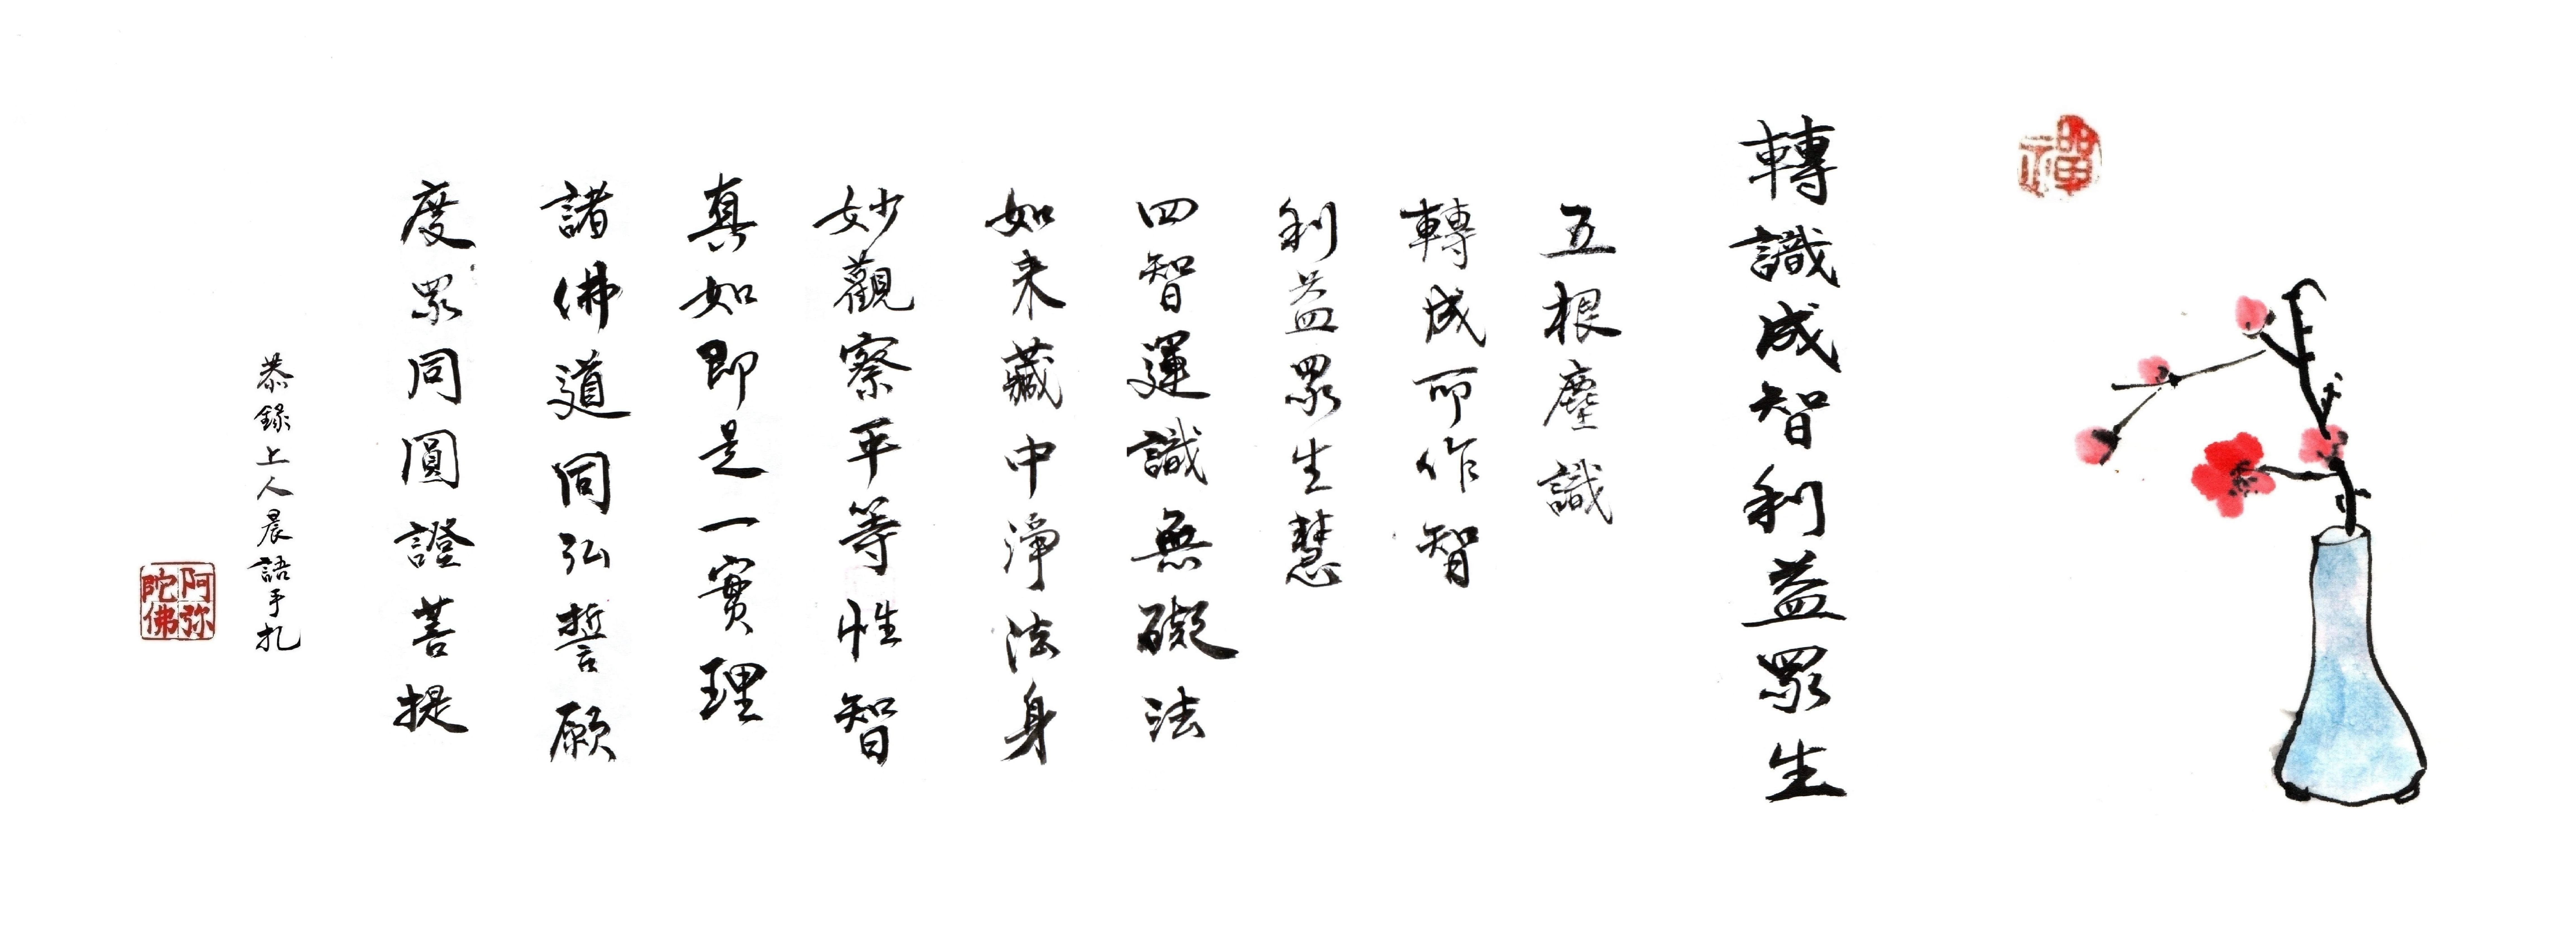 禪
轉識成智利益眾生
五根塵識
轉成所作智
利益眾生慧
四智運識無礙法
如来藏中淨法身
妙觀察平等性智
真如即是一實理
諸佛道同弘誓願
度眾同圓證菩提
恭錄上人晨語手札
阿弥陀佛